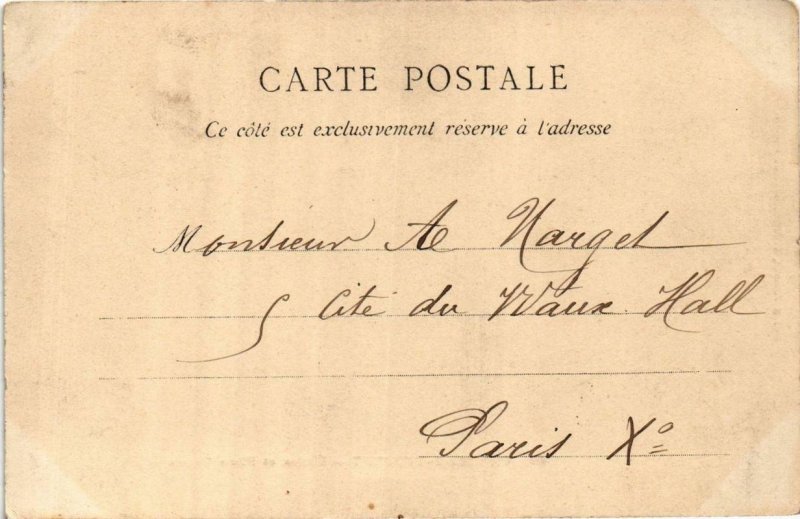 CARTE POSTALE
Ce côté est exclusivement réservé à l'adresse
Monsieur A Narget
5 Cité du Waux Hall
Paris Xº